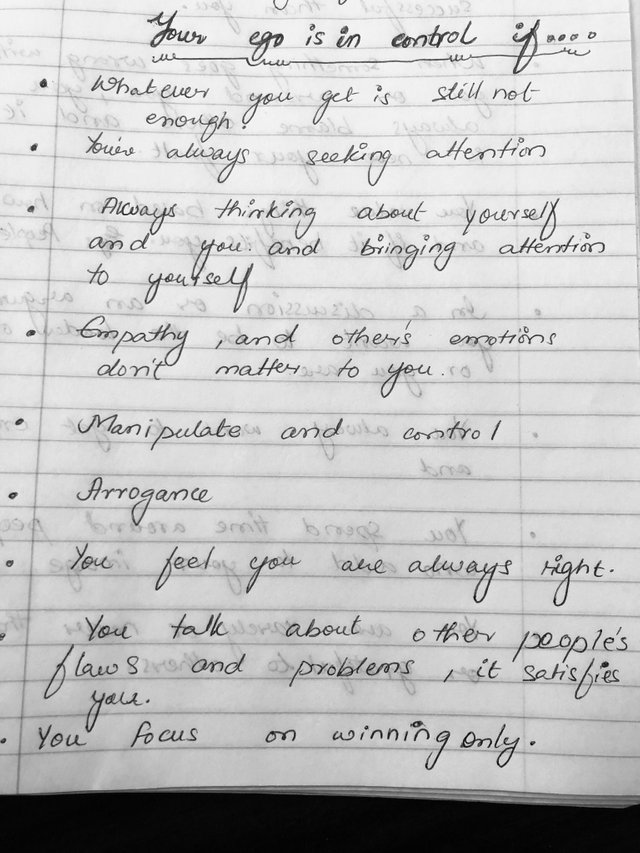 Your ego is in control if....
• Whatever you get is still not
enough.
• You're always seeking attention
• Always thinking about yourself
and you. and bringing attention
to yourself
• Empathy , and other's emotions
don't matter to you.
• Manipulate and control
• Arrogance
• You feel you are always right.
• You talk about other people's
flaws and problems , it satisfies
you.
• You focus on winning only.